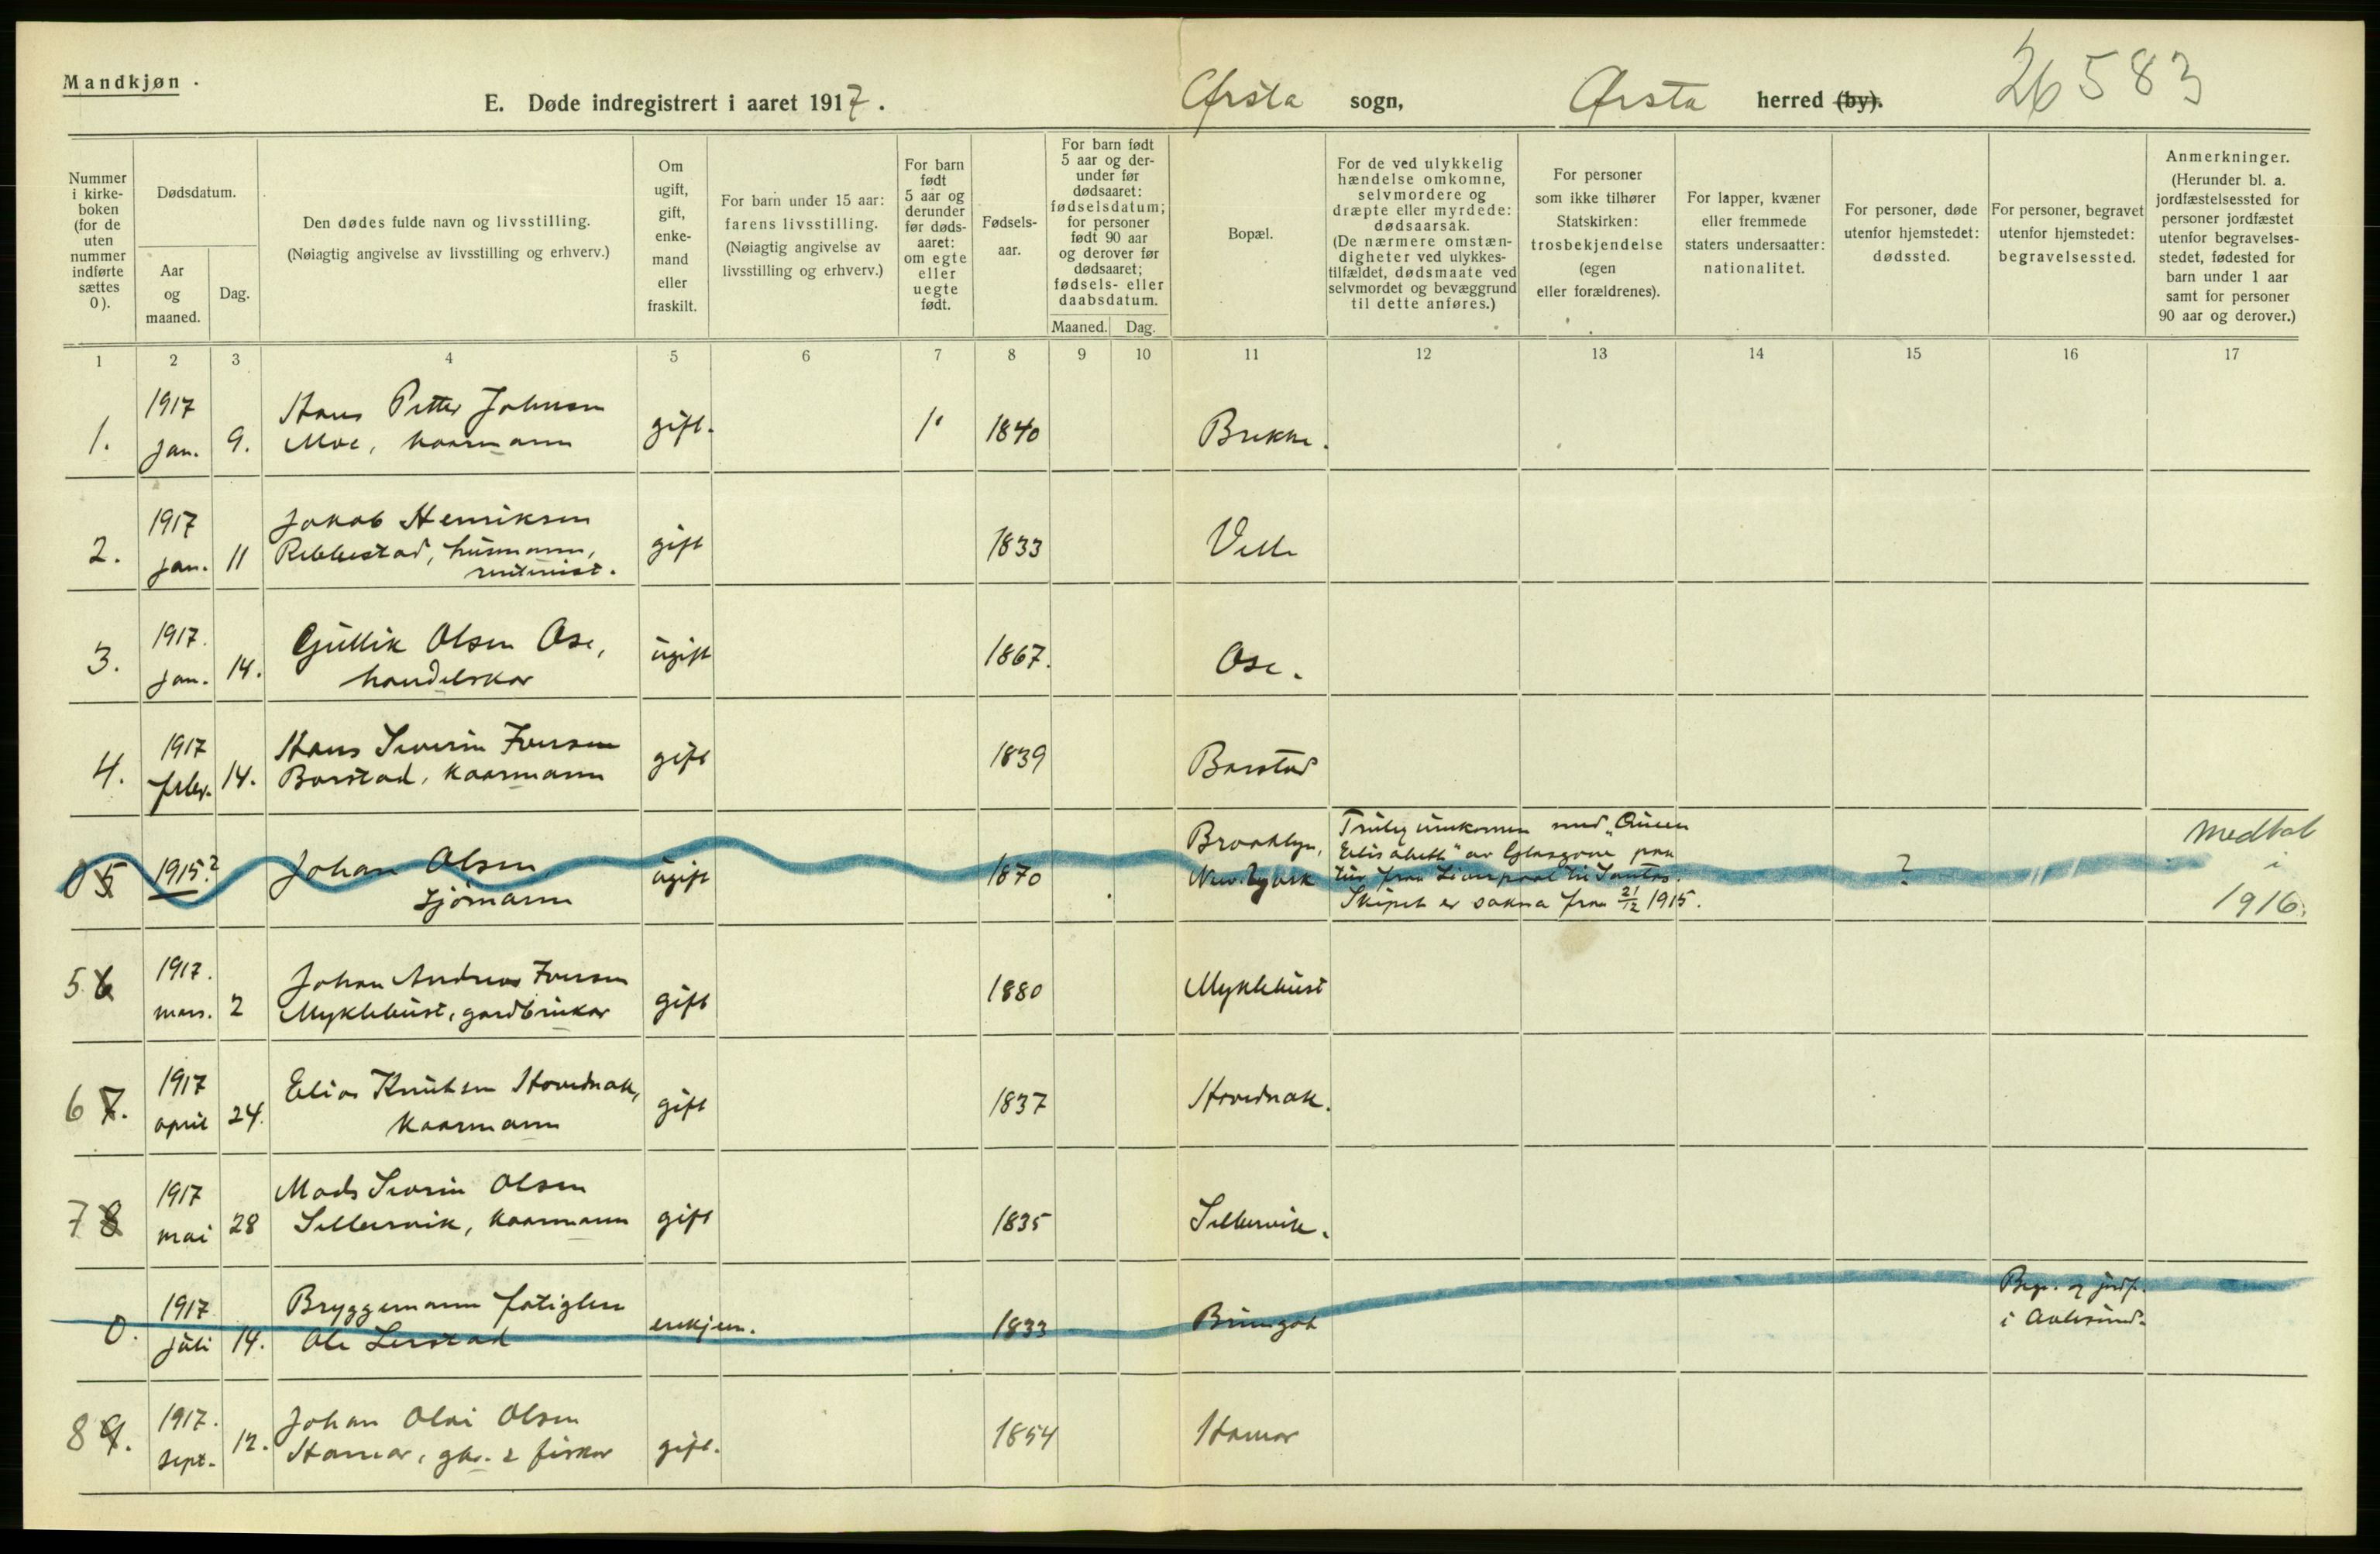 Mandkjøn.
E. Døde indregistrert i aaret 1917.
Ørsta sogn,
Ørsta herred (by).
26583
Nummer i kirke-boken (for de uten nummer indførte sættes 0).
Dødsdatum.
Aar og maaned.
Dag.
Den dødes fulde navn og livsstilling.
(Nøiagtig angivelse av livsstilling og erhverv.)
Om ugift, gift, enke-mand eller fraskilt.
For barn under 15 aar: farens livsstilling.
(Nøiagtig angivelse av livsstilling og erhverv.)
For barn født 5 aar og derunder før døds-aaret: om egte eller uegte født.
Fødsels-aar.
For barn født 5 aar og der-under før dødsaaret: fødselsdatum; for personer født 90 aar og derover før dødsaaret; fødsels- eller daabsdatum.
Maaned.
Dag.
Bopæl.
For de ved ulykkelig hændelse omkomne, selvmordere og dræpte eller myrdede: dødsaarsak.
(De nærmere omstæn-digheter ved ulykkes-tilfældet, dødsmaate ved selvmordet og bevæggrund til dette anføres.)
For personer som ikke tilhører Statskirken: trosbekjendelse (egen eller forældrenes).
For lapper, kvæner eller fremmede staters undersaatter: nationalitet.
For personer, døde utenfor hjemstedet: dødssted.
For personer, begravet utenfor hjemstedet: begravelsessted.
Anmerkninger.
(Herunder bl. a. jordfæstelsessted for personer jordfæstet utenfor begravelses-stedet, fødested for barn under 1 aar samt for personer 90 aar og derover.)
1 2 3 4 5 6 7 8 9 10 11 12 13 14 15 16 17
1. 1917 jan. 9. Hans Petter Johnsen
Moe, kaarmann gift. 1. 1840 Brekke.
2. 1917 jan. 11 Jakob Henriksen
Rebbestad, husmann, gift 1833 Velle
3. 1917. jan. 14. Gullik Olsen Ose,
handelskar ugift 1867. Ose.
4. 1917 febr. 14. Hans Severin Iversen
Barstad, kaarmann gift 1839 Barstad
0 5 1915? Johan Olsen,
sjømann ugift 1870
Brooklyn,
New-York
Truleg umkomen med "Queen
Elisabeth" av Glasgow paa
tur fraa Liverpool til Santos.
Skipet er sakna fraa 21/12 1915.
?
Medtat
i
1916.
5 6 1917. mars. 2 Johan Andreas Iversen
Myklebust, gardbrukar gift 1880 Myklebust
6 7. 1917 april 24. Elias Knutsen Hovdenak,
kaarmann gift 1837 Hovdenak.
7 8 1917 mai 28 Mads Severin Olsen
Sellervik, kaarmann gift 1835 Sellervik.
0. 1917 juli 14. Bryggemann fatiglem
Ole Lerstad enkjem. 1833
Begr. og jordf.
i Aalesund.
8 9. 1917. sept. 12. Johan Olai Olsen
Hamar, gbr. & fiskar gift. 1854 Hamar